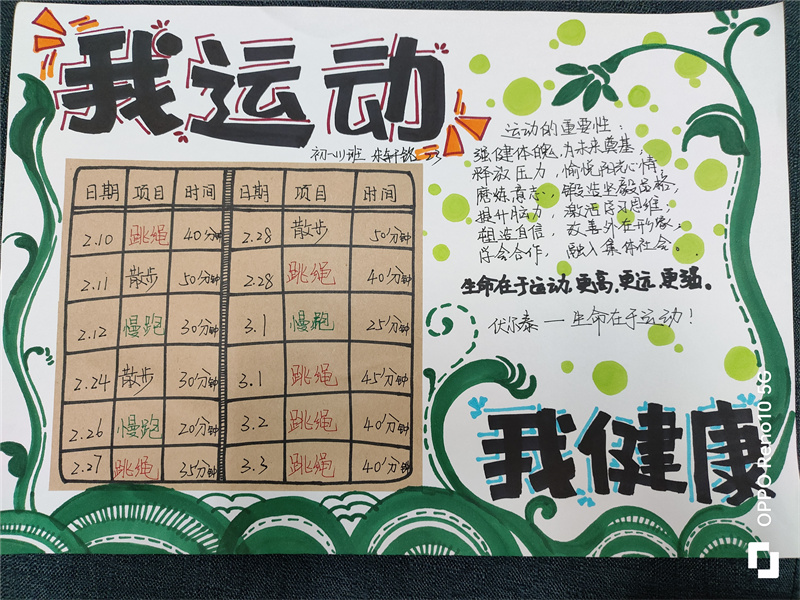 我运动
初一(1)班 朱轩铭 23
日期 项目 时间 日期 项目 时间
2.10 跳绳 40分钟 2.28 散步 50分钟
2.11 散步 50分钟 2.28 跳绳 40分钟
2.12 慢跑 30分钟 3.1 慢跑 25分钟
2.24 散步 30分钟 3.1 跳绳 45分钟
2.26 慢跑 20分钟 3.2 跳绳 40分钟
2.27 跳绳 35分钟 3.3 跳绳 40分钟
运动的重要性:
强健体魄,为未来奠基;
释放压力,愉悦阳光心情;
磨炼意志,锻造坚毅品格;
提升脑力,激活学习思维;
塑造自信,改善外在形象;
学会合作,融入集体社会。
生命在于运动,更高,更远,更强。
伏尔泰—生命在于运动!
我健康
OPPO Reno10 5G